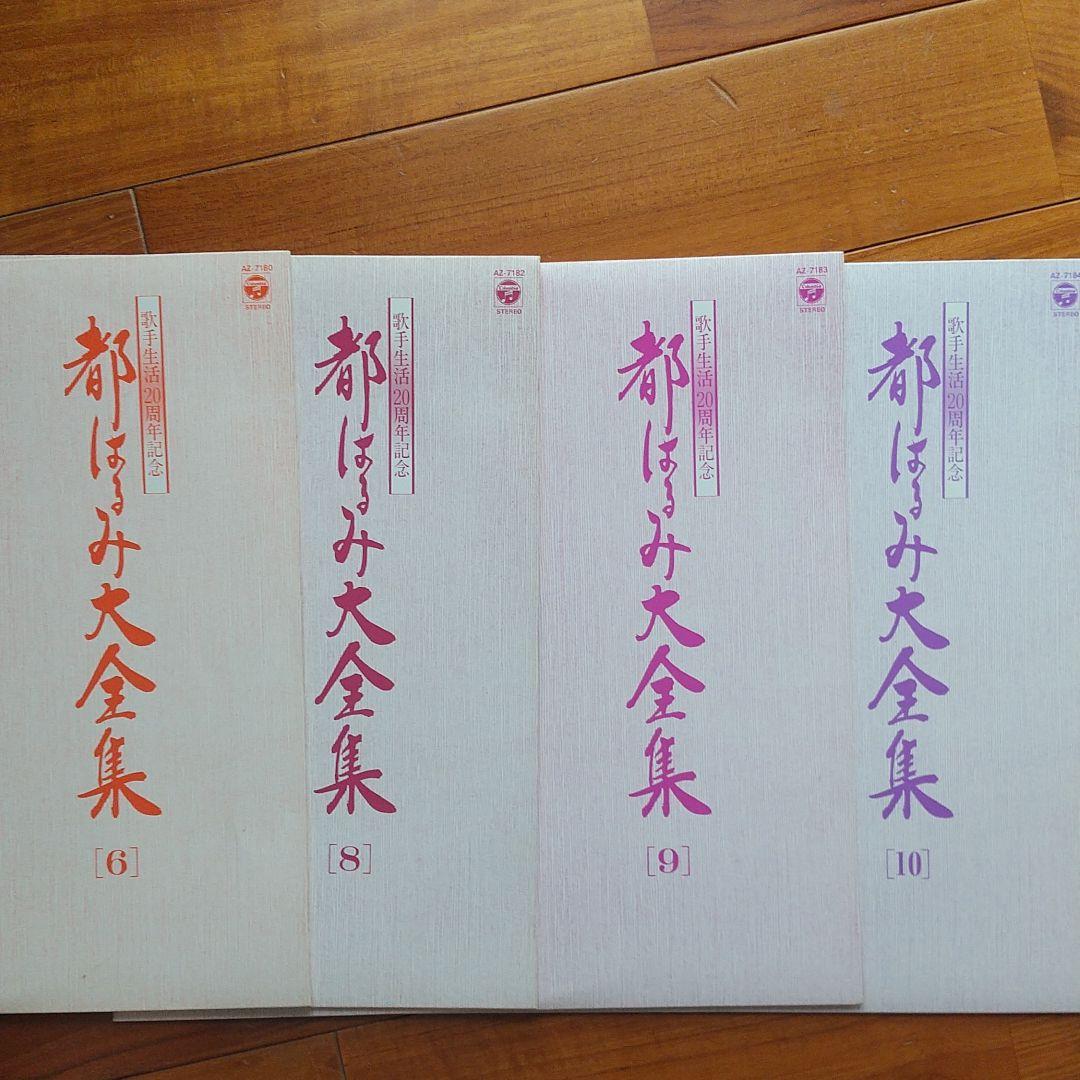 AZ-7180
Columbia
STEREO
歌手生活20周年記念
都はるみ大全集
[6]
AZ-7182
Columbia
STEREO
歌手生活20周年記念
都はるみ大全集
[8]
AZ-7183
Columbia
STEREO
歌手生活20周年記念
都はるみ大全集
[9]
AZ-7184
Columbia
STEREO
歌手生活20周年記念
都はるみ大全集
[10]